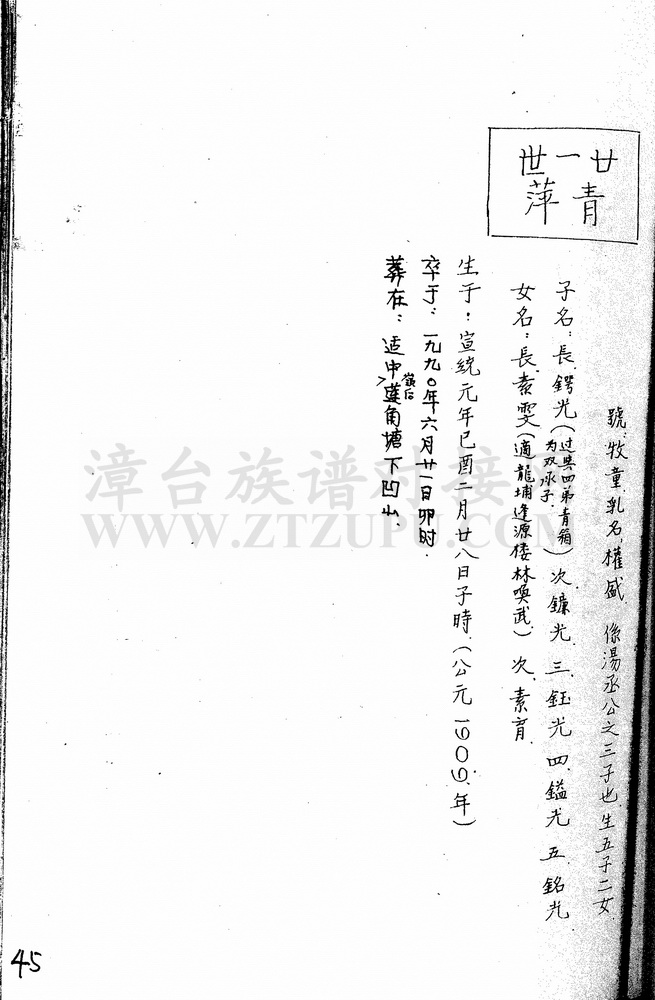 廿一世
青萍
號牧童乳名權盛 係湯丞公之三子也生五子二女
子名：長鍔光（过与四弟青箱为双承子）次鐮光 三鈺光 四鎰光 五銘光
女名：長素雯（適龍埔逢源楼林喚武）次素育
生于：宣統元年己酉二月廿八日子時（公元1909年）
卒于：一九九〇年六月廿一日卯时
葬在：适中莲角塘下凹山
漳台族谱对接
WWW.ZTZUPU.COM
45